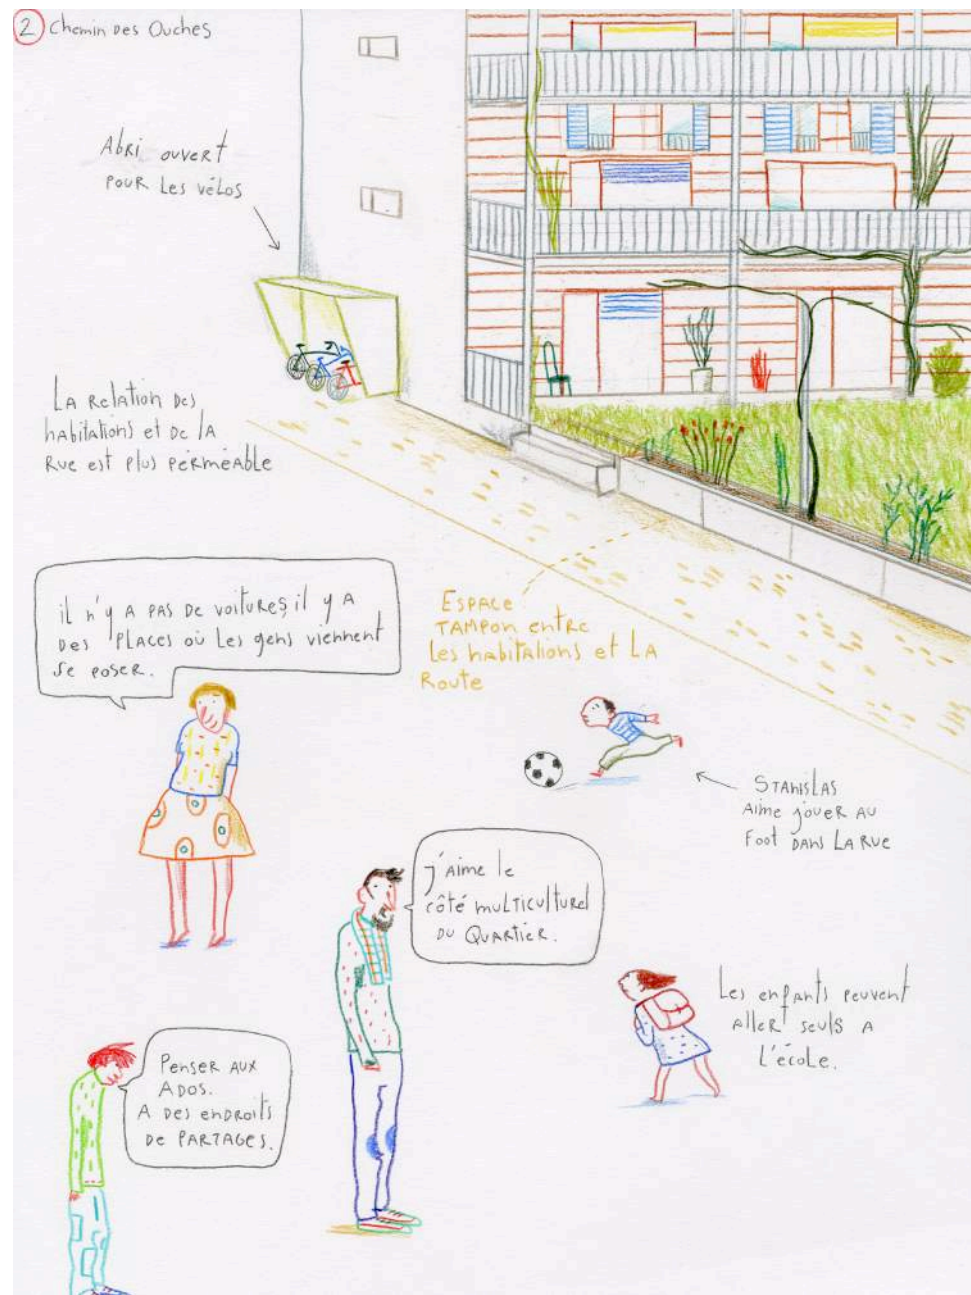 2 Chemin des Ouches
Abri ouvert
pour les vélos
La relation des
habitations et de la
rue est plus pérméable
il n'y a pas de voitures, il y a
des places où les gens viennent
se poser.
Espace
tampon entre
les habitations et la
route
Stanislas
aime jouer au
foot dans la rue
j'aime le
côté multiculturel
du quartier.
Les enfants peuvent
aller seuls a
l'école.
Penser aux
ados.
A des endroits
de partages.